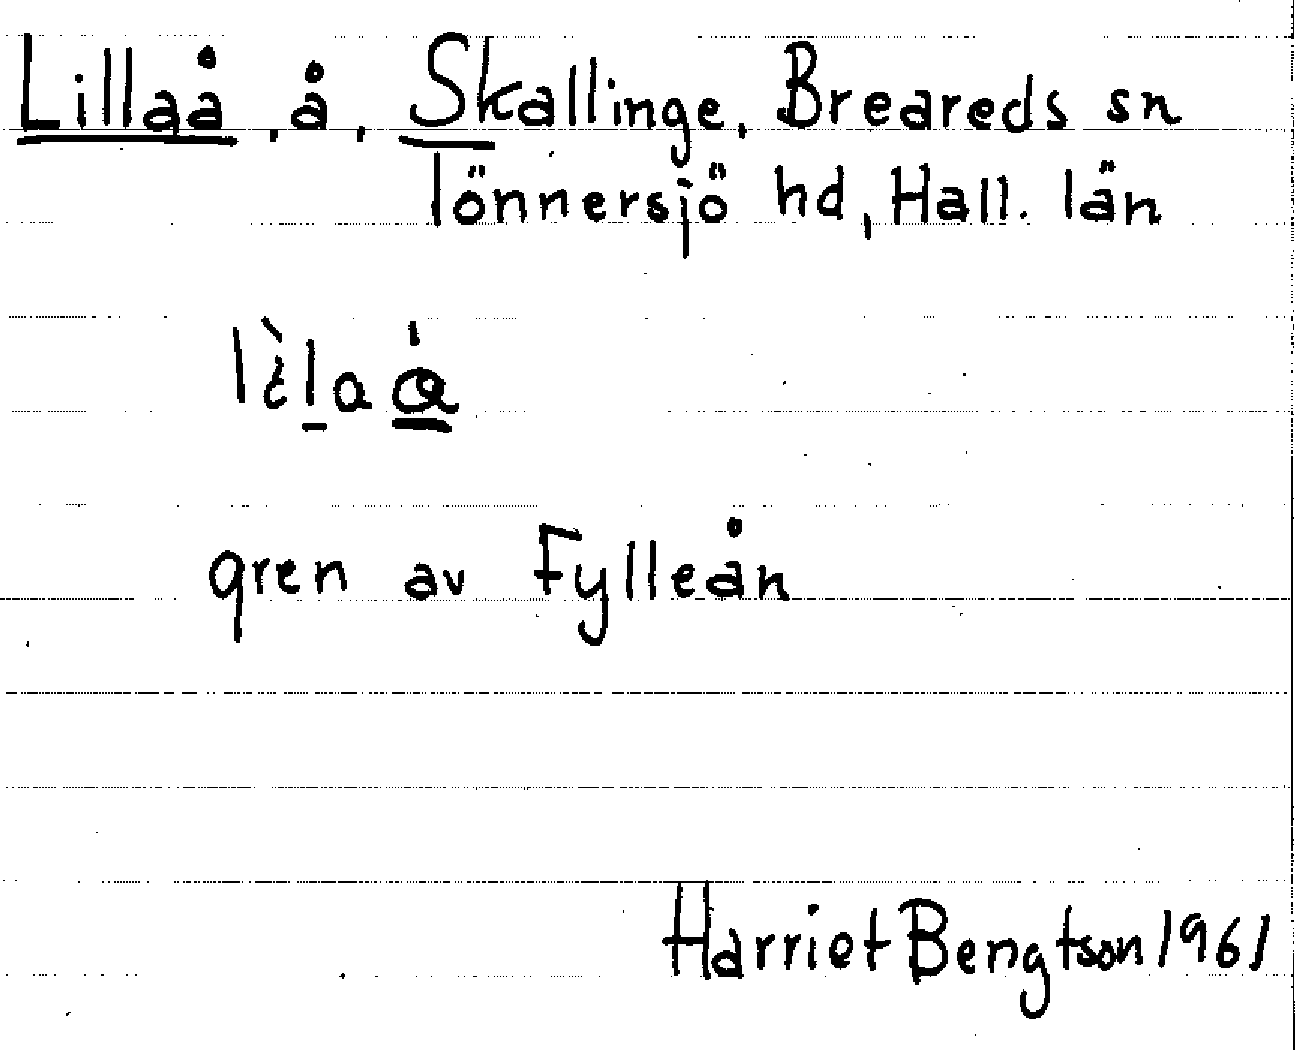 Lillaå, å, Skallinge, Breareds sn
Tönnersjö hd, Hall. län
gren av Fylleån
Harriet Bengtson 1961